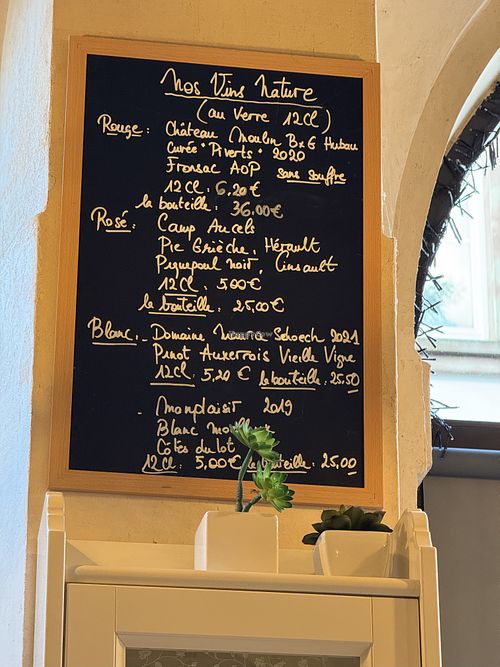 Nos Vins Nature
(au verre 12Cl)
Rouge: Château Moulin B×G Hubau
Cuvée "Piverts" 2020
Fronsac AOP sans souffre
12Cl: 6,20€
la bouteille: 36,00€
Rosé: Camp Aucels
Pie Grièche, Hérault
Piquepoul noir, Cinsault
12Cl: 5,00€
la bouteille: 25,00€
Blanc: - Domaine Schoech 2021
Pinot Auxerrois Vieille Vigne
12Cl: 5,20€ la bouteille: 25,50
- Monplaisir 2019
Blanc
Côtes du lot
12Cl: 5,00€ la bouteille: 25,00